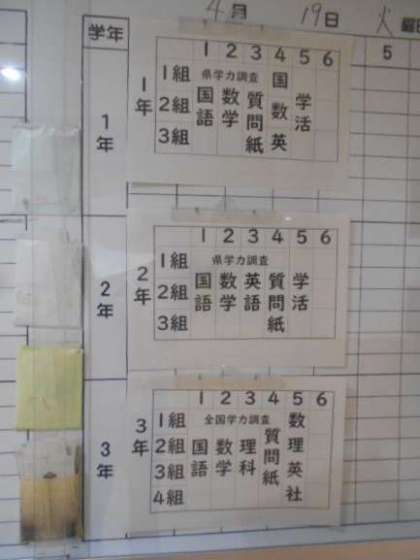 4月 19日 火
学年
5
1年
1年
1 2 3 4 5 6
県学力調査
1組
2組
3組
国語
数学
質問紙
国数英
学活
2年
2年
1 2 3 4 5 6
県学力調査
1組
2組
3組
国語
数学
英語
質問紙
学活
3年
3年
1 2 3 4 5 6
全国学力調査
1組
2組
3組
4組
国語
数学
理科
質問紙
数理英社